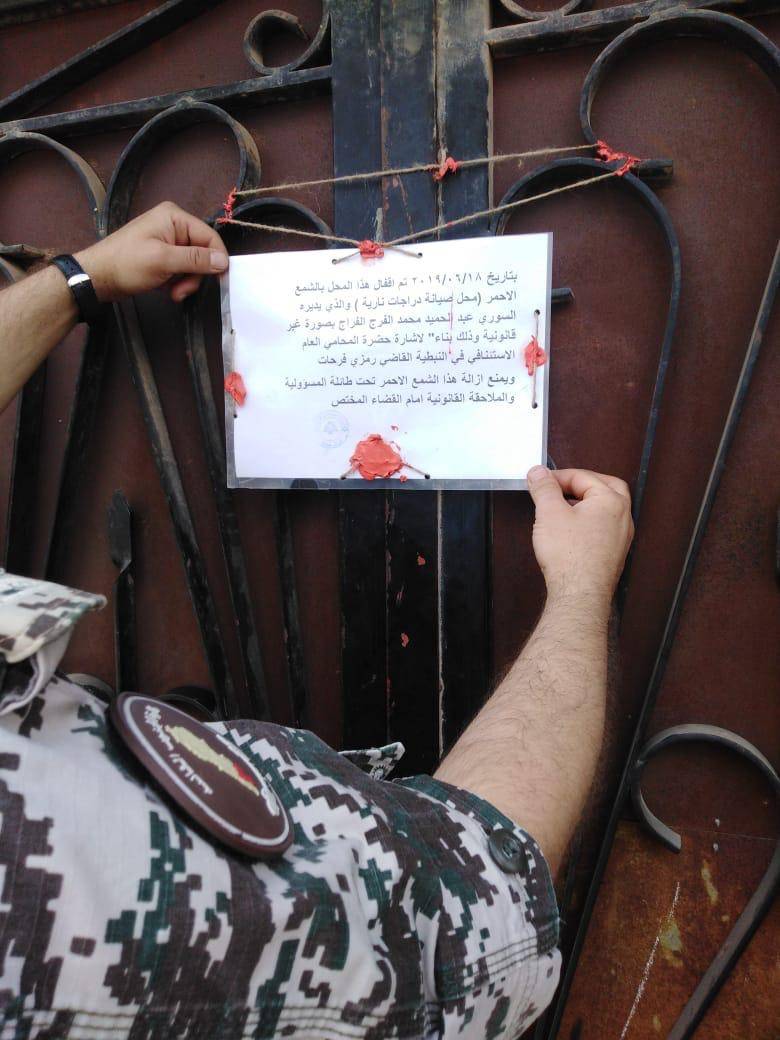 بتاريخ ٢٠١٩/٠٦/١٨ تم اقفال هذا المحل بالشمع
الاحمر (محل صيانة دراجات نارية ) والذي يديره
السوري عبد الحميد محمد الفرج الفراج بصورة غير
قانونية وذلك بناء" لاشارة حضرة المحامي العام
الاستئنافي في النبطية القاضي رمزي فرحات
ويمنع ازالة هذا الشمع الاحمر تحت طائلة المسؤولية
والملاحقة القانونية امام القضاء المختص